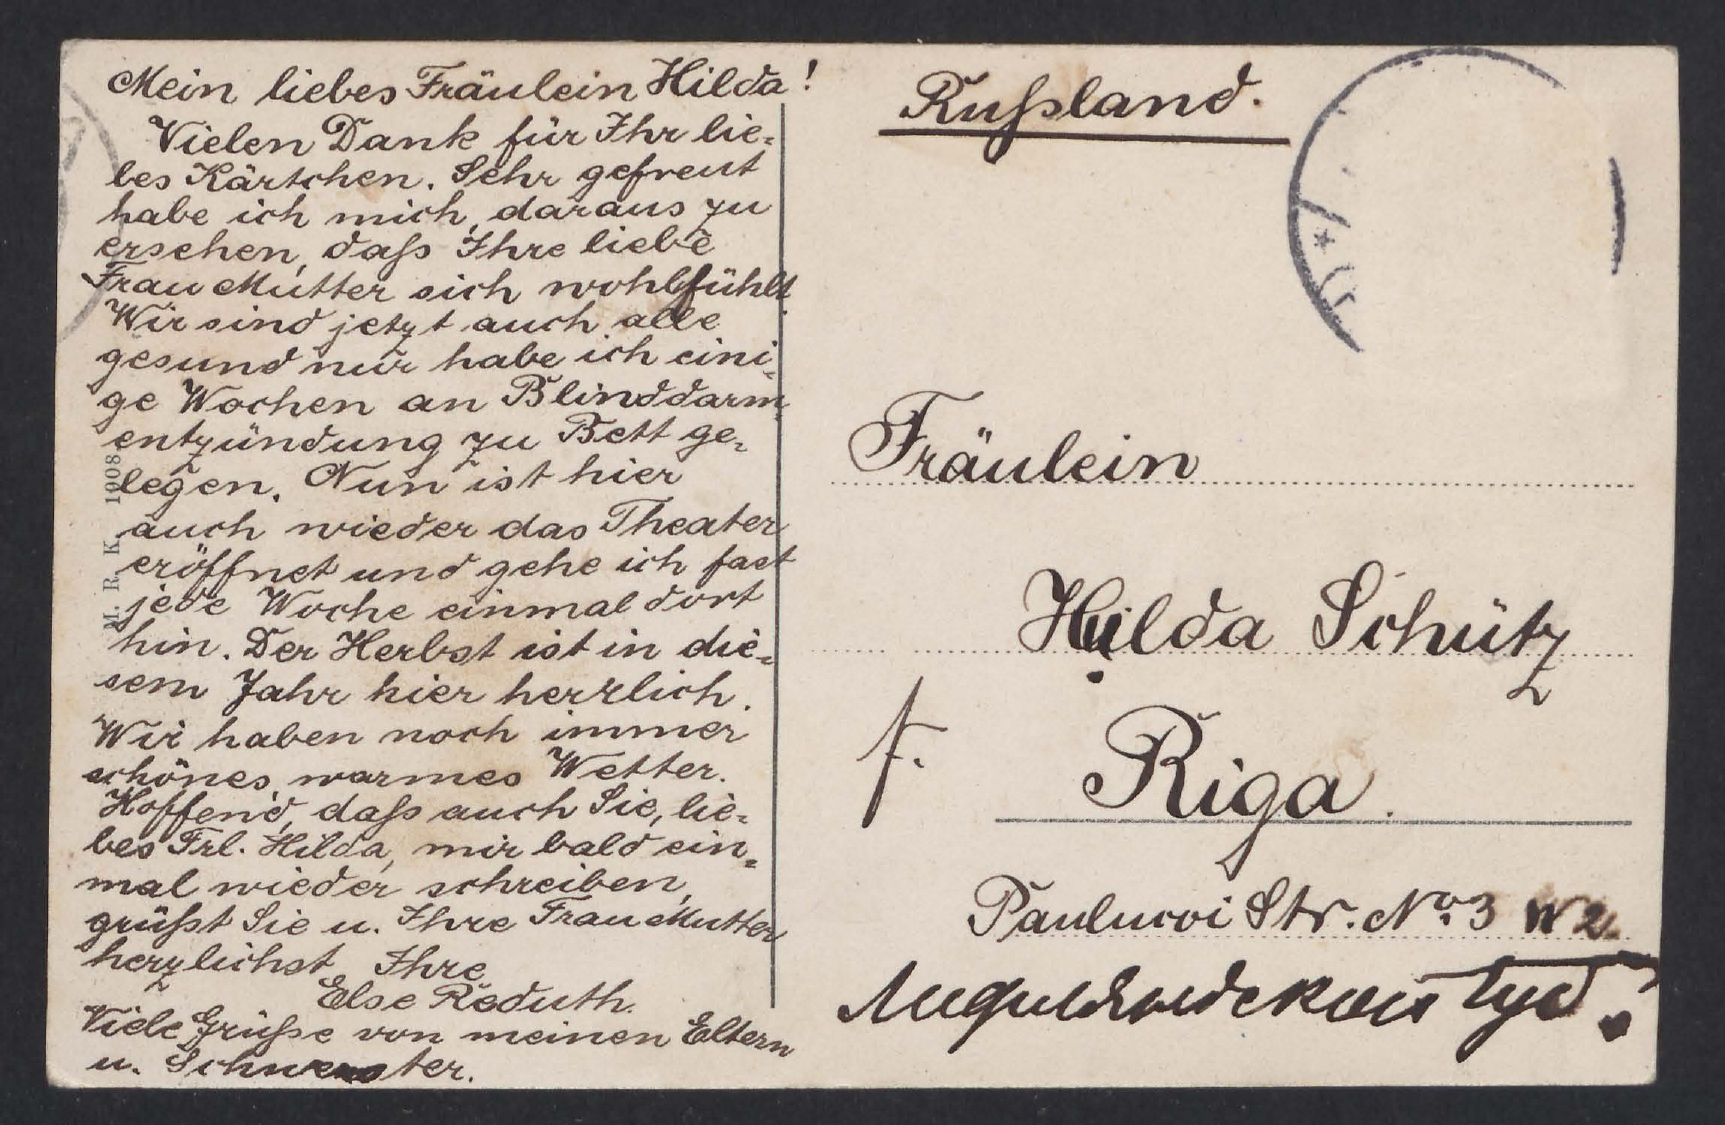 Mein liebes Fräulein Hilda!
Vielen Dank für Ihr lie-
bes Kärtchen. Sehr gefreut
habe ich mich, daraus zu
ersehen, daß Ihre liebe
Frau Mutter sich wohlfühlt.
Wir sind jetzt auch alle
gesund nur habe ich eini-
ge Wochen an Blinddarm-
entzündung zu Bett ge-
legen. Nun ist hier
auch wieder das Theater
eröffnet und gehe ich fast
jede Woche einmal dort
hin. Der Herbst ist in die-
sem Jahr hier herrlich.
Wir haben noch immer
schönes, warmes Wetter.
Hoffend, daß auch Sie, lie-
bes Frl. Hilda, mir bald ein-
mal wieder schreiben,
grüßt Sie u. Ihre Frau Mutter
herzlichst Ihre
Else Reduth.
Viele Grüße von meinen Eltern
u. Schwester.
M. R. K. 1008
Rußland.
Fräulein
Hilda Schütz
f.
Riga.
Paulucci Str. No. 3 W 2.
Лифляндской губ.